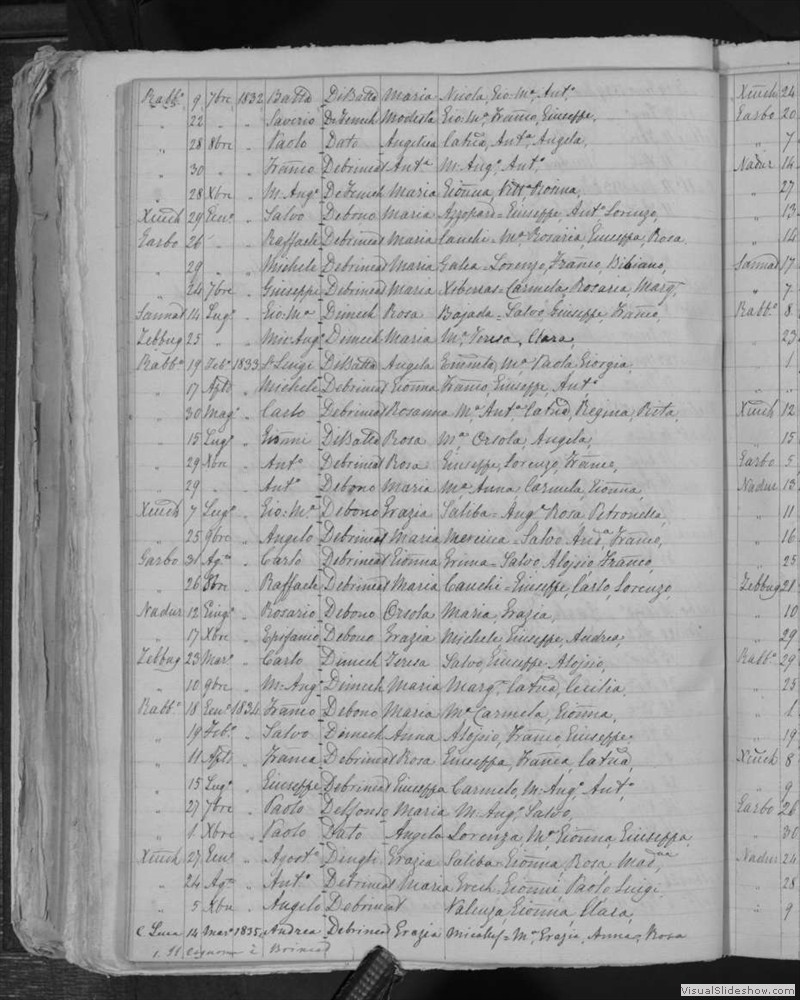 Rabb.o 9 7bre 1832 Batta DiBatta Maria Nicola, Gio: Ma. Ant.o
" 22 " " Saverio DeDomech Modesta Gio: Ma. Franco, Giuseppe,
" 28 8bre " Paolo Dato Angelica Catna, Anta, Angela,
" 30 " " Franco Debrincat Ant.a M: Ang.o, Ant.o
" 28 Xbre " M: Ang.o Maria Gionna,
Xeuch 29 Gen.o " Salvo Debono Maria Azzopard = Giuseppe Ant.o Lorenzo,
Garbo 26 " " Raffaele Debrincat Maria Cauchi = Ma. Rosaria, Giuseppa, Rosa
" 29 " " Michele Debrincat Maria Galea = Lorenzo, Franco, Bibiana,
" 24 7bre " Giuseppe Debrincat Maria Xiberras = Carmela, Rosaria, Marg.
Sannat 14 Lug.o " Gio: Ma Dimech Rosa Bajada = Salvo, Giuseppe, Franco,
Zebbug 25 " " Mic: Ang.o Dimech Maria Ma. Teresa, Clara,
Rabb.o 19 Feb.o 1833 Luigi DiBatta Angela Ma. Paola, Giorgia,
" 17 Aple " Michele Debrincat Gionna Franco, Giuseppe, Ant.o
" 30 Mag.o " Carlo Debrincat Rosanna Ma. Ant.a Catna, Regina, Rita,
" 15 Lug.o " Gionni DiBatta Rosa Ma. Orsola, Angela,
" 29 Xbre " Ant.o Debrincat Rosa Giuseppe, Lorenzo, Franco,
" 29 " " Ant.o Debono Maria Ma. Anna, Carmela, Gionna,
Xeuch 7 Lug.o " Gio: Ma. Debono Grazia Saliba = Ang.a Rosa Petronella,
" 25 9bre " Angelo Debrincat Maria Mercieca = Salvo Franco,
Garbo 31 Ag.o " Carlo Debrincat Gionna Grima = Salvo Alojsio, Franco,
" 26 " Raffaele Debrincat Maria Cauchi = Giuseppe, Carlo, Lorenzo,
Nadur 12 Giug.o " Rosario Debono Orsola Maria, Grazia,
" 17 Xbre " Epifanio Debono Grazia Michele, Giuseppe, Andrea,
Zebbug 23 Mar.o " Carlo Dimech Teresa Salvo, Giuseppe, Alojsio,
" 10 9bre " M: Ang.o Dimech Maria Marg. Catna, Cecilia,
Rabb.o 18 Gen.o 1834 Franco Debono Maria Ma. Carmela, Gionna,
" 19 Feb.o " Salvo Dimech Anna Alojsio, Franco, Giuseppe,
" 11 Aple " Debrincat Rosa Giuseppa, Franca, Catna,
" 15 Lug.o " Giuseppe Debrincat Giuseppa Carmelo, M: Ang.o, Ant.o
" 27 7bre " Paolo Delfonso Maria M: Ang.o, Salvo,
" 1 Xbre " Paolo Dato Angela Lorenza, Ma. Gionna, Giuseppa,
Xeuch 27 Gen.o " Agost.o Dingli Grazia Saliba = Gionna, Rosa
" 24 Ag.o " Ant.o Debrincat Maria Grech = Gionni, Paolo, Luigi
" 5 Xbre " Angelo Debrincat Valenza, Gionna, Clara,
Luca 14 Mar.o 1835 Andrea Debrincat Grazia Micallef = Ma. Grazia, Anna, Rosa
1. Il Cognome è Brincat
Xeuch 24
Garbo 20
" 7
Nadur 14
" 27
" 13
" 14
Sannat 17
" 7
Rabb.o 8
" 23
" 1
Xeuch 12
" 15
Garbo 5
Nadur 13
" 11
" 16
" 25
Zebbug 21
" 10
" 29
Rabb.o 29
" 25
" 1
" 19
Xeuch 8
" 9
Garbo 26
" 30
Nadur 24
" 28
" 9
VisualSlideshow.com